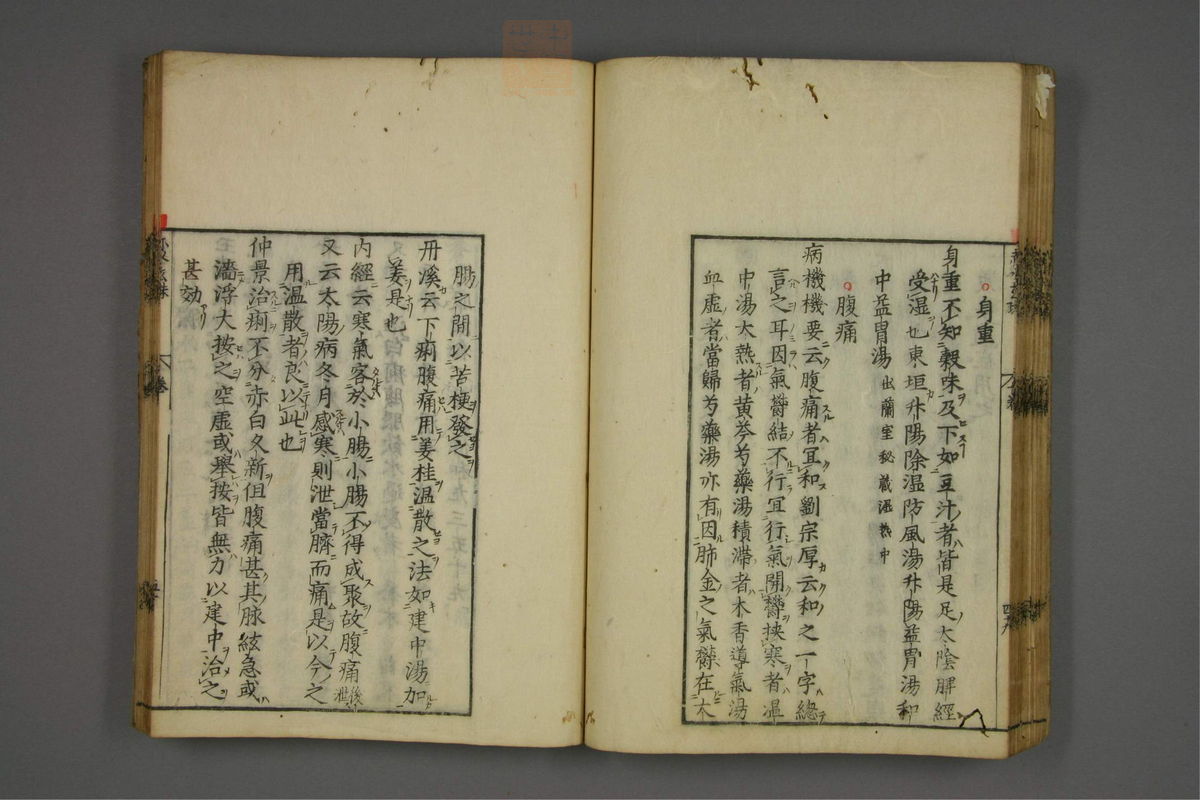 身重
身重不知穀味及下如豆汁者皆是足太陰脾經
受湿也東垣升陽除湿防風湯升陽益胃湯和
中益胃湯出蘭室秘藏湿熱中
腹痛
病機機要云腹痛者宜和劉宗厚云和之一字總
言之耳因氣鬱結不行宜行氣開鬱挾寒者温
中湯大熱者黄芩芍藥湯積滞者木香導氣湯
血虚者當歸芍藥湯亦有因肺金之氣鬱在大
腸之間以苦梗發之
丹溪云下痢腹痛用姜桂温散之法如建中湯加
姜是也
内經云寒氣客於小腸小腸不得成聚故腹痛後泄
又云太陽病冬月感寒則泄當臍而痛是以今之
用温散者良以此也
仲景治痢不分赤白久新但腹痛甚其脉絃急或
濇浮大按之空虚或舉按皆無力以建中治之
甚効